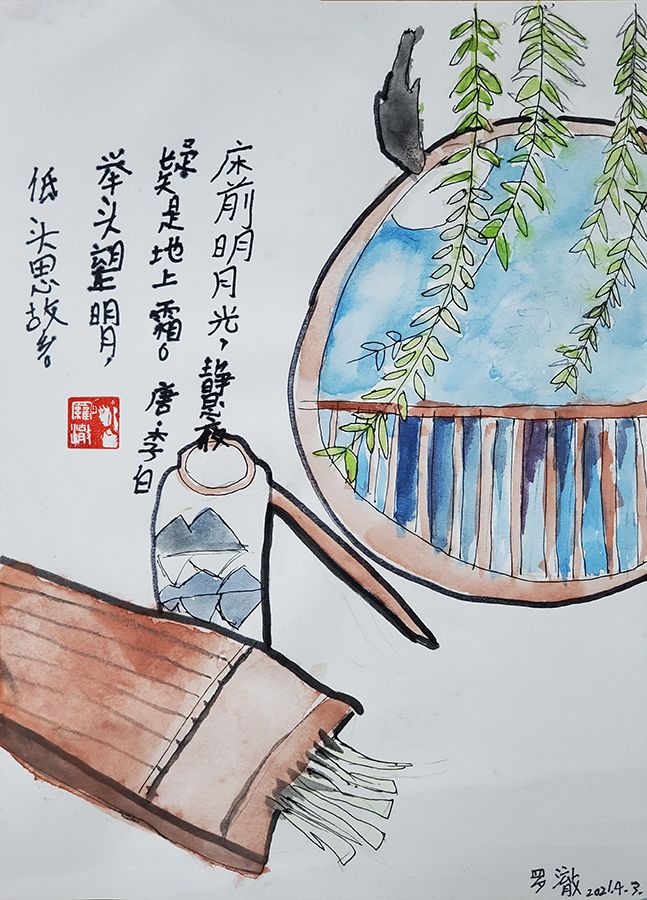 床前明月光，
静夜思
疑是地上霜。
唐·李白
举头望明月，
低头思故乡。
罗澈 2021.4.3.